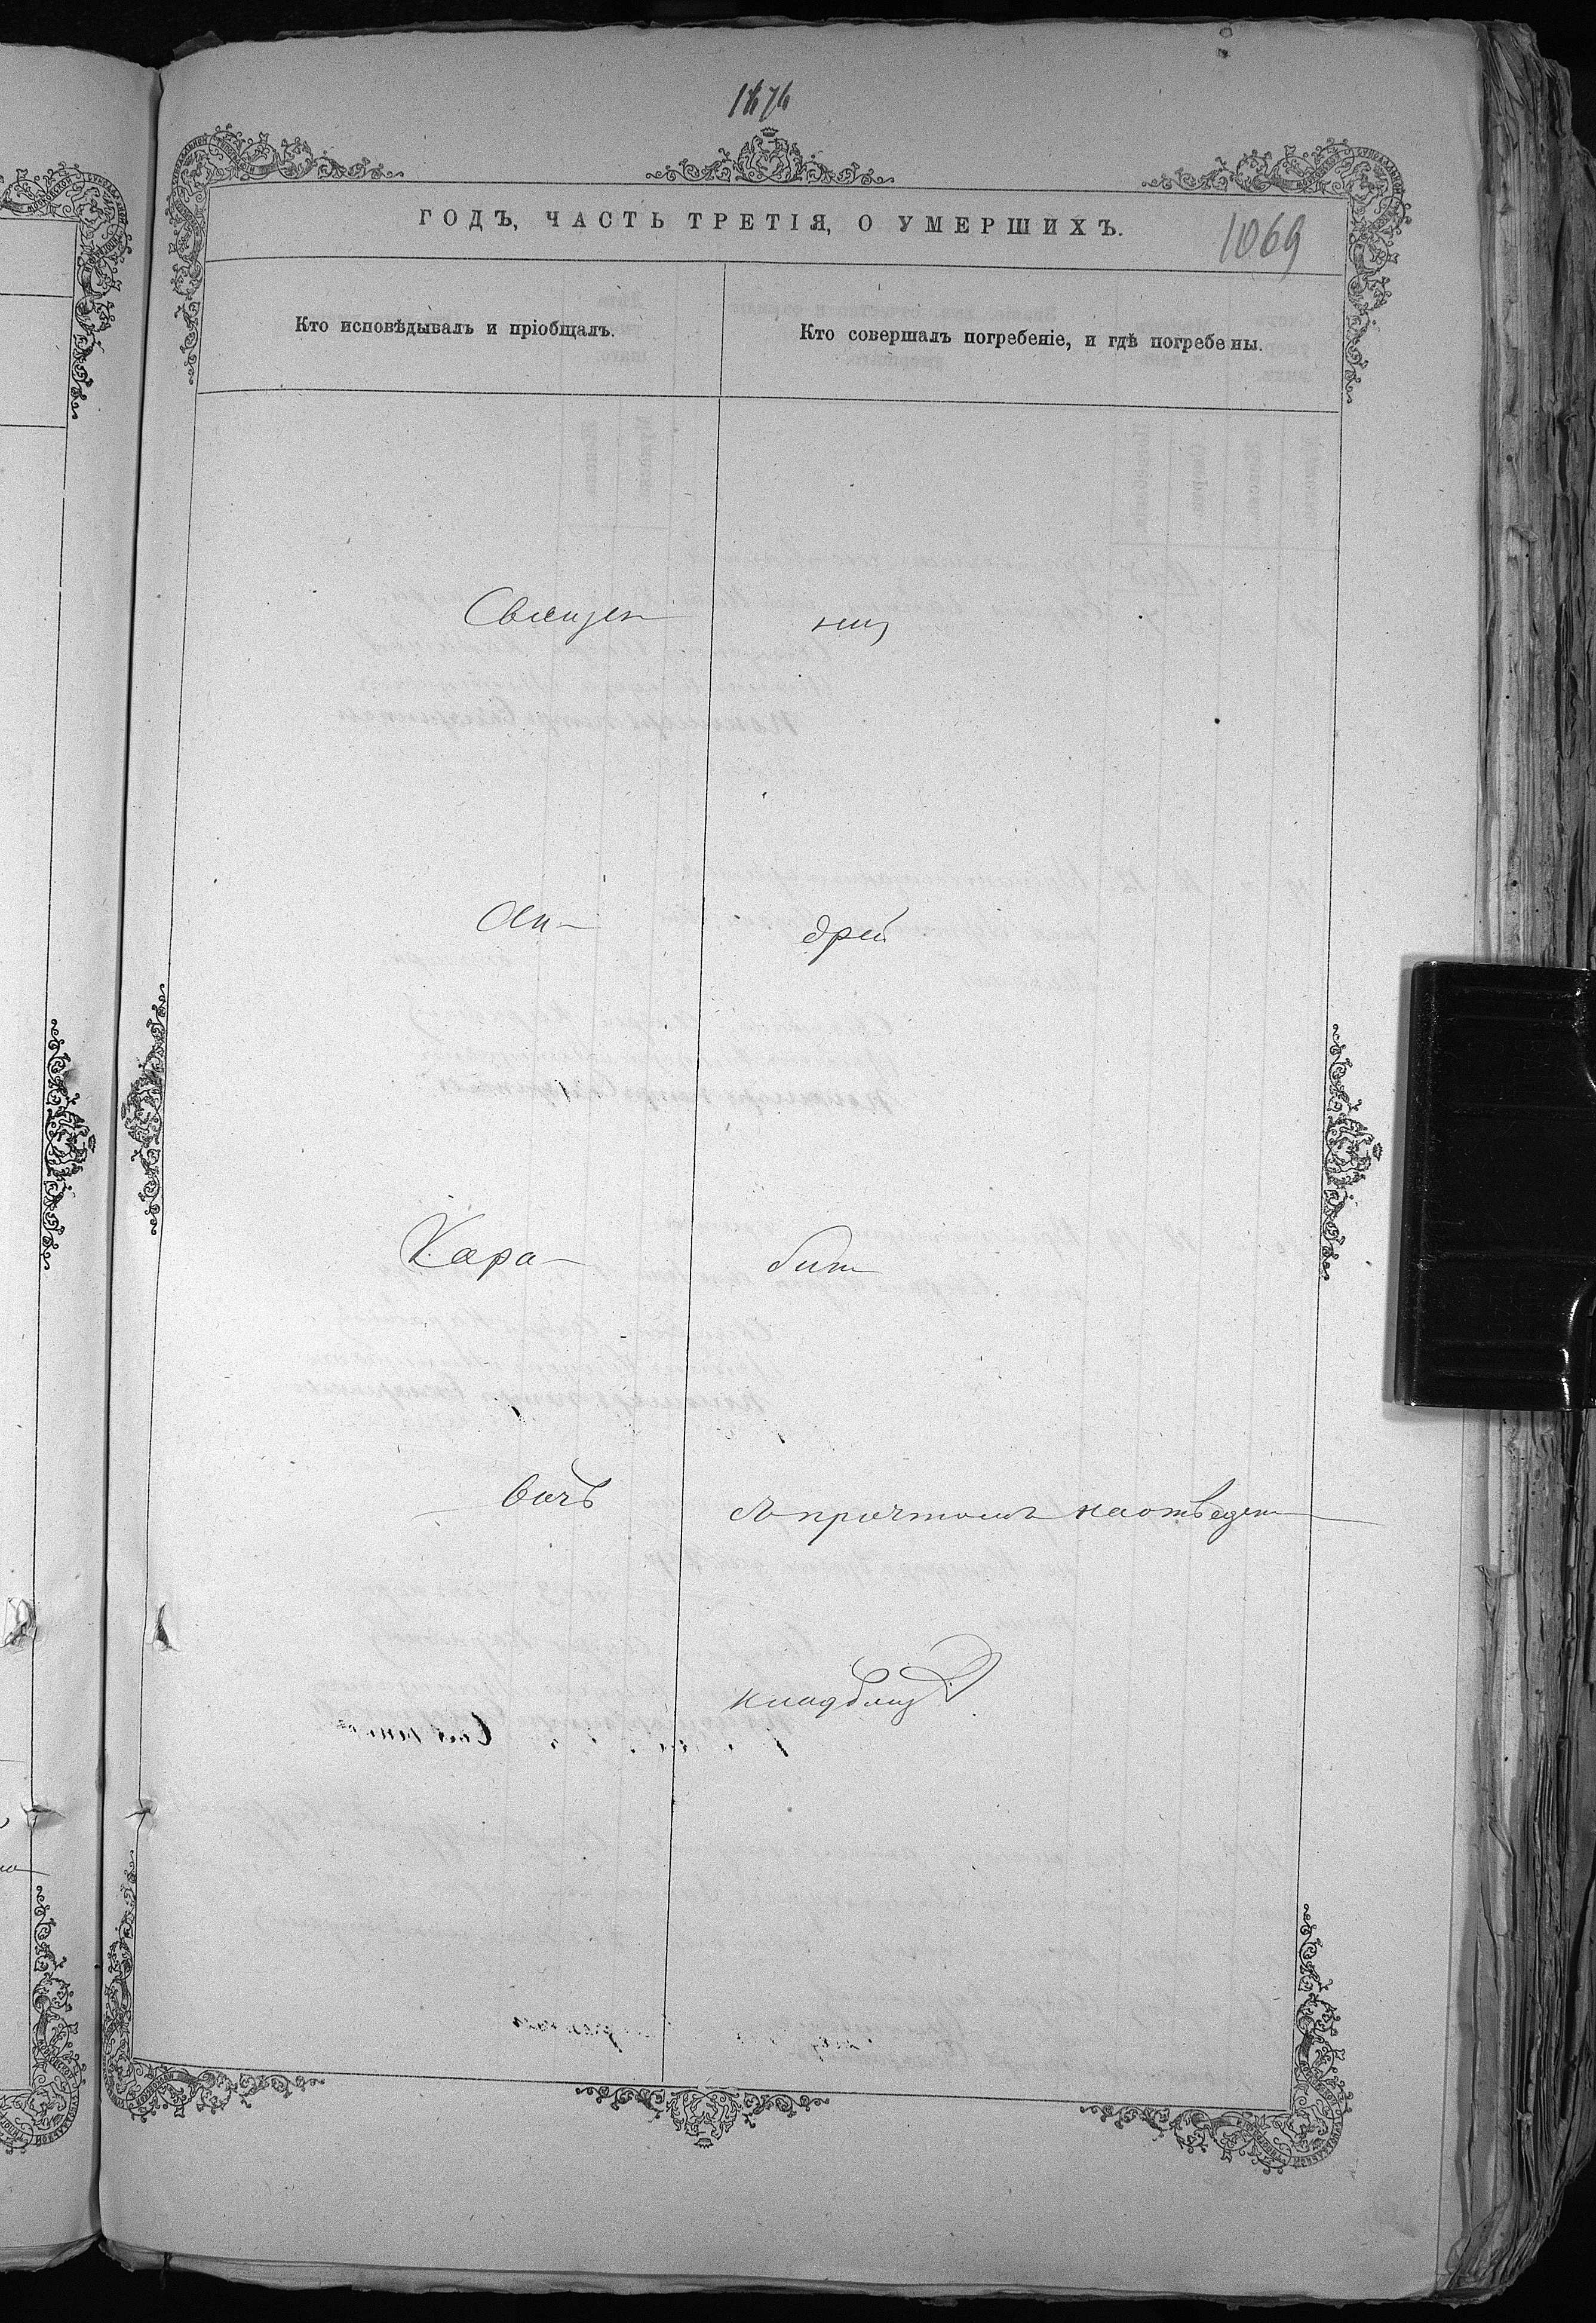 1876
ГОДЪ, ЧАСТЬ ТРЕТІЯ, О УМЕРШИХЪ.
1069
Кто исповѣдывалъ и пріобщалъ.
Кто совершалъ погребеніе, и гдѣ погребены.
Священ ник
Ан- дрей
Кара- бин
вичъ
съ причтомъ на отведен
кладбищѣ